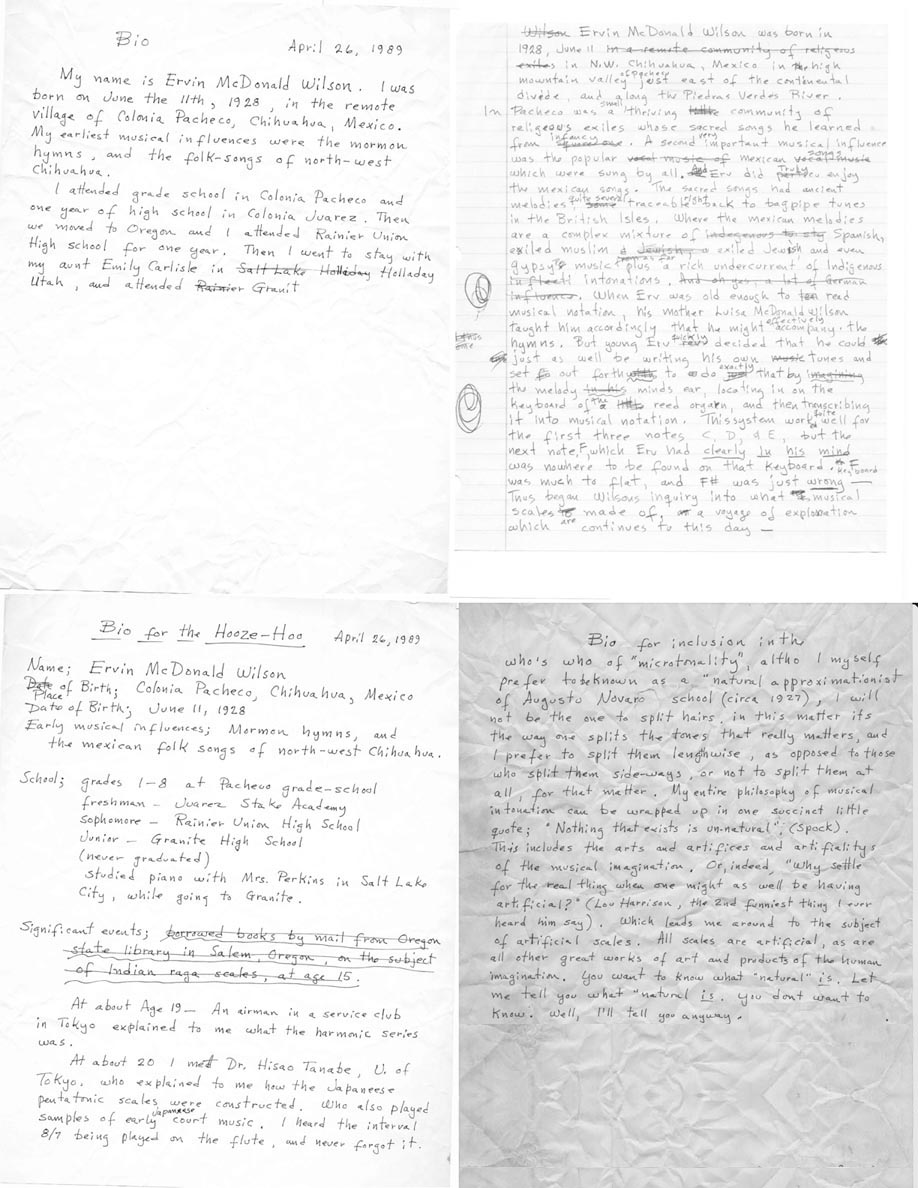 Bio
April 26, 1989
My name is Ervin McDonald Wilson. I was
born on June the 11th, 1928, in the remote
village of Colonia Pacheco, Chihuahua, Mexico.
My earliest musical influences were the mormon
hymns, and the folk-songs of north-west
Chihuahua.
I attended grade school in Colonia Pacheco and
one year of high school in Colonia Juarez. Then
we moved to Oregon and I attended Rainier Union
High school for one year. Then I went to stay with
my aunt Emily Carlisle in Salt Lake Holladay Holladay
Utah, and attended Rainier Granit
Wilson Ervin McDonald Wilson was born in
1928, June 11 in a remote community of religeous
exiles in N.W. Chihuahua, Mexico in the high
mountain valley of Pacheco just east of the continental
divide, and along the Piedras Verdes River.
In Pacheco was a small thriving little community of
religeous exiles whose sacred songs he learned
from infancy. A second very important musical influence
was the popular vocal music of mexican songs vocal music
which were sung by all. And Erv did Truly enjoy
the mexican songs. The sacred songs had ancient
melodies quite several some traceable right back to bagpipe tunes
in the British Isles. Where the mexican melodies
are a complex mixture of indegenous to sty Spanish,
exiled muslim & Jewish a exiled Jewish and even
Gypsy music plus a rich undercurrent of Indigenous
intonations. And oh yes, a lot of German
influence. When Erv was old enough to read
musical notation, his mother Luisa McDonald Wilson
taught him accordingly that he might effectively accompany the
hymns. But young Erv quickly decided that he could
just as well be writing his own music tunes and
set out forth to do exactly that by imagining
the melody in his minds ear, locating in on the
keyboard of the reed organ, and then transcribing
it into musical notation. This system work quite well for
the first three notes C, D, & E, but the
next note, F, which Erv had clearly in his mind
was nowhere to be found on that keyboard. The F keyboard
was much to flat, and F# was just wrong —
Thus began Wilsons inquiry into what musical
scales made of, a voyage of exploration
which are continues to this day —
Bio for the Hooze-Hoo
April 26, 1989
Name; Ervin McDonald Wilson
Date Place of Birth; Colonia Pacheco, Chihuahua, Mexico
Date of Birth; June 11, 1928
Early musical influences; Mormon hymns, and
the mexican folk songs of north-west Chihuahua.
School; grades 1-8 at Pacheco grade-school
freshman - Juarez Stake Academy
Sophomore - Rainier Union High School
Junior - Granite High School
(never graduated)
Studied piano with Mrs. Perkins in Salt Lake
City, while going to Granite.
Significant events; borrowed books by mail from Oregon
state library in Salem, Oregon, on the subject
of Indian raga scales, at age 15.
At about Age 19 — An airman in a service club
in Tokyo explained to me what the harmonic series
was.
At about 20 I met Dr. Hisao Tanabe, U. of
Tokyo. who explained to me how the Japaneese
pentatonic scales were constructed. Who also played
samples of early Japaneese court music. I heard the interval
8/7 being played on the flute, and never forgot it.
Bio for inclusion in th
who's who of "microtonality", altho I myself
prefer to be known as a "natural approximationist
of Augusto Novaro school (circa 1927), I will
not be the one to split hairs. in this matter its
the way one splits the tones that really matters, and
I prefer to split them lenghwise, as opposed to those
who split them side-ways, or not to split them at
all, for that matter. My entire philosophy of musical
intonation can be wrapped up in one succinct little
quote; "Nothing that exists is un-natural", (Spock).
This includes the arts and artifices and artifialitys
of the musical imagination. Or, indeed "Why settle
for the real thing when one might as well be having
artificial?" (Lou Harrison, the 2nd funniest thing I ever
heard him say). Which leads me around to the subject
of artificial scales. All scales are artificial, as are
all other great works of art and products of the human
imagination. You want to know what "natural" is. Let
me tell you what "natural is. you dont want to
know. Well, I'll tell you anyway.